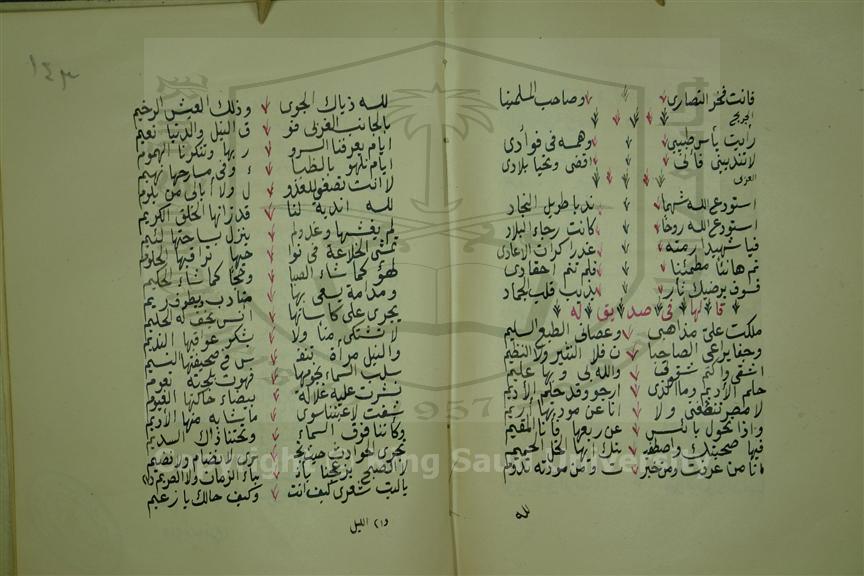 فانت فخر النصارى وصاحب المسلمينا
الجريح
رأيت يأس طبيبي وهمه في فؤادي
لا تندبيني فاني اقضى وتحيا بلادي
العزى
استودع الله شهما ندبا طويل النجاد
استودع الله روحا كانت رجاء البلاد
فيا شهيدا رمته غدرا كرات الاعادى
نم هانئا مطمئنا فلم تنم احقادى
فسوف يرضيك ثار يذيب قلب الجماد
قالها في صديق له
ملكت عليّ مذاهبى وعصانى الطبع السليم
وجفا يراعى الصاحبا ن فلا النثير ولا النظيم
اشقى واكتم شقوتى والله بي وبها عليم
حلم الاديم وما الذى ارجو وقد حلم الاديم
لا مصر تنصفنى ولا انا عن مودتها اريم
واذا تحول بائس عن ربعها فانا المقيم
فيها صحبتك واصطفيـ ـتك ايها الخل الحميم
انا من عرفت ومن خبر ت ومن مودته تدوم
لله
١٤٣
لله ذياك الجوى وذلك العيش الرخيم
بالجانب الغربي فو ق النيل والدنيا نعيم
ايام يعرفنا السرو ر بها وتنكرنا الهموم
ايام نلهو بالظبا ء وفي مسارحها نهيم
لا انت تصغى للعذو ل ولا أبالى من يلوم
لله اندية لنا قد زانها الخلق الكريم
لم يغشها وغد ولم ينزل بساحتها لئيم
تمشى الخلاعة في نوا حيها تراقبها الحلوم
لهو كما شاء الصبا وحجا كما شاء الحكيم
ومدامة يسعى بها متادب ويطوف ريم
يجرى على كاساتها انس يخف له الحليم
لا تشتكى منا ولا يشكو عواقبها النديم
والنيل مرآة تنفـ ـس في صحيفتها النسيم
سلب السماء نجومها فهوت بلجته تعوم
نشرت عليه غلالة بيضاء حاكتها الغيوم
شفت لاعيننا سوى ما شابه منها الاديم
وكأننا فوق السماء وتحتنا ذاك السديم
تجرى الحوادث حيث تجـ ـرى لا نضام ولا نضيم
لا الصبح يزعجنا بانـ ـباء الزمان ولا الصريم
ياليت شعرى كيف انت وكيف حالك يا زعيم